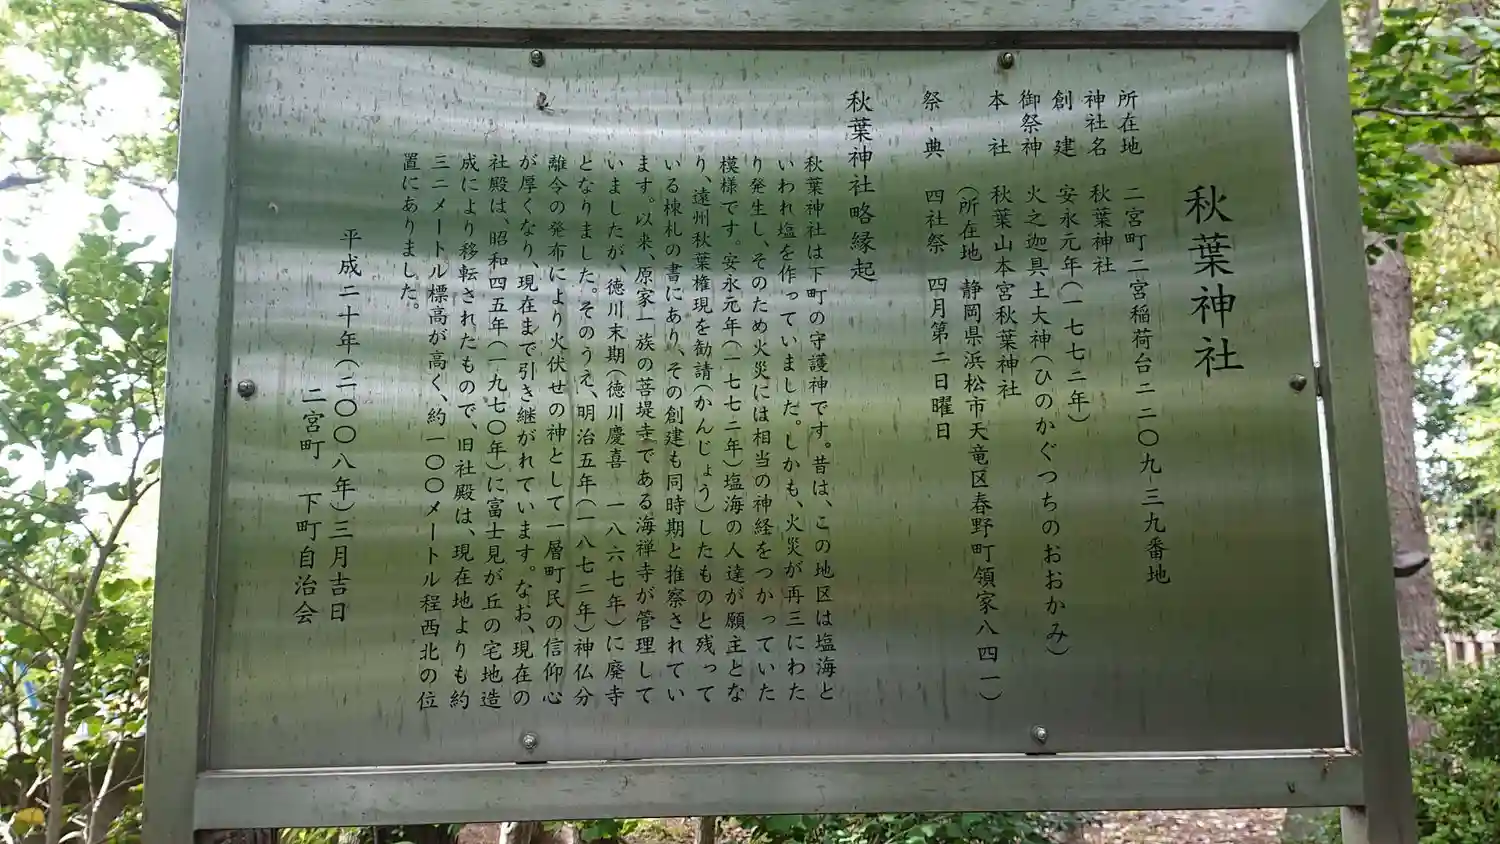 秋葉神社
所在地 二宮町二宮稲荷台二二〇九ー三九番地
神社名 秋葉神社
創建 安永元年(一七七二年)
御祭神 火之迦具土大神(ひのかぐつちのおおかみ)
本社 秋葉山本宮秋葉神社
(所在地 静岡県浜松市天竜区春野町領家八四一)
祭典 四社祭 四月第二日曜日
秋葉神社略縁起
秋葉神社は下町の守護神です。昔は、この地区は塩海と
いわれ塩を作っていました。しかも、火災が再三にわた
り発生し、そのため火災には相当の神経をつかっていた
模様です。安永元年(一七七二年)塩海の人達が願主とな
り、遠州秋葉権現を勧請(かんじょう)したものと残って
いる棟札の書にあり、その創建も同時期と推察されてい
ます。以来、原家一族の菩堤寺である海禅寺が管理して
いましたが、徳川末期(徳川慶喜 一八六七年)に廃寺
となりました。そのうえ、明治五年(一八七二年)神仏分
離令の発布により火伏せの神として一層町民の信仰心
が厚くなり、現在まで引き継がれています。なお、現在の
社殿は、昭和四五年(一九七〇年)に富士見が丘の宅地造
成により移転されたもので、旧社殿は、現在地よりも約
三二メートル標高が高く、約一〇〇メートル程西北の位
置にありました。
平成二十年(二〇〇八年)三月吉日
二宮町 下町自治会